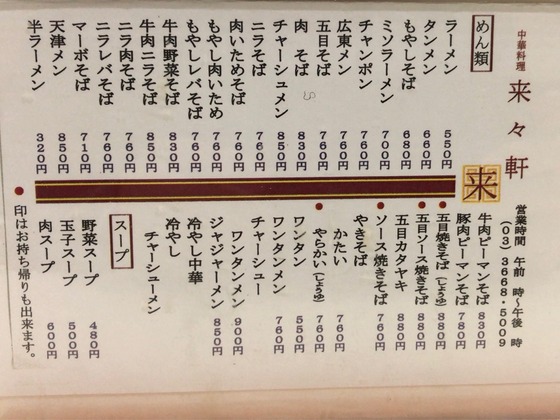 中華料理
来々軒
来
営業時間 午前 時〜午後 時
(03)3668-5009
めん類
ラーメン 550円
タンメン 660円
もやしそば 680円
ミソラーメン 700円
チャンポン 760円
広東メン 760円
五目そば 760円
肉 そば 830円
チャーシュメン 850円
ニラそば 760円
肉いためそば 760円
もやし肉いため 760円
もやしレバそば 760円
牛肉野菜そば 830円
牛肉ニラそば 850円
ニラ肉そば 760円
ニラレバそば 760円
マーボそば 710円
天津メン 850円
半ラーメン 320円
牛肉ピーマンそば 830円
豚肉ピーマンそば 780円
●五目焼きそば(しょうゆ) 880円
●五目ソース焼きそば 880円
五目カタヤキ 880円
●ソース焼きそば 760円
やきそば
かたい 760円
●やらかい(しょうゆ) 760円
ワンタン 550円
ワンタンメン 760円
チャーシュー
ワンタンメン 900円
ジャジャーメン 850円
冷やし中華
冷やし
チャーシューメン
スープ
野菜スープ 480円
玉子スープ 500円
肉スープ 600円
●印はお持ち帰りも出来ます。